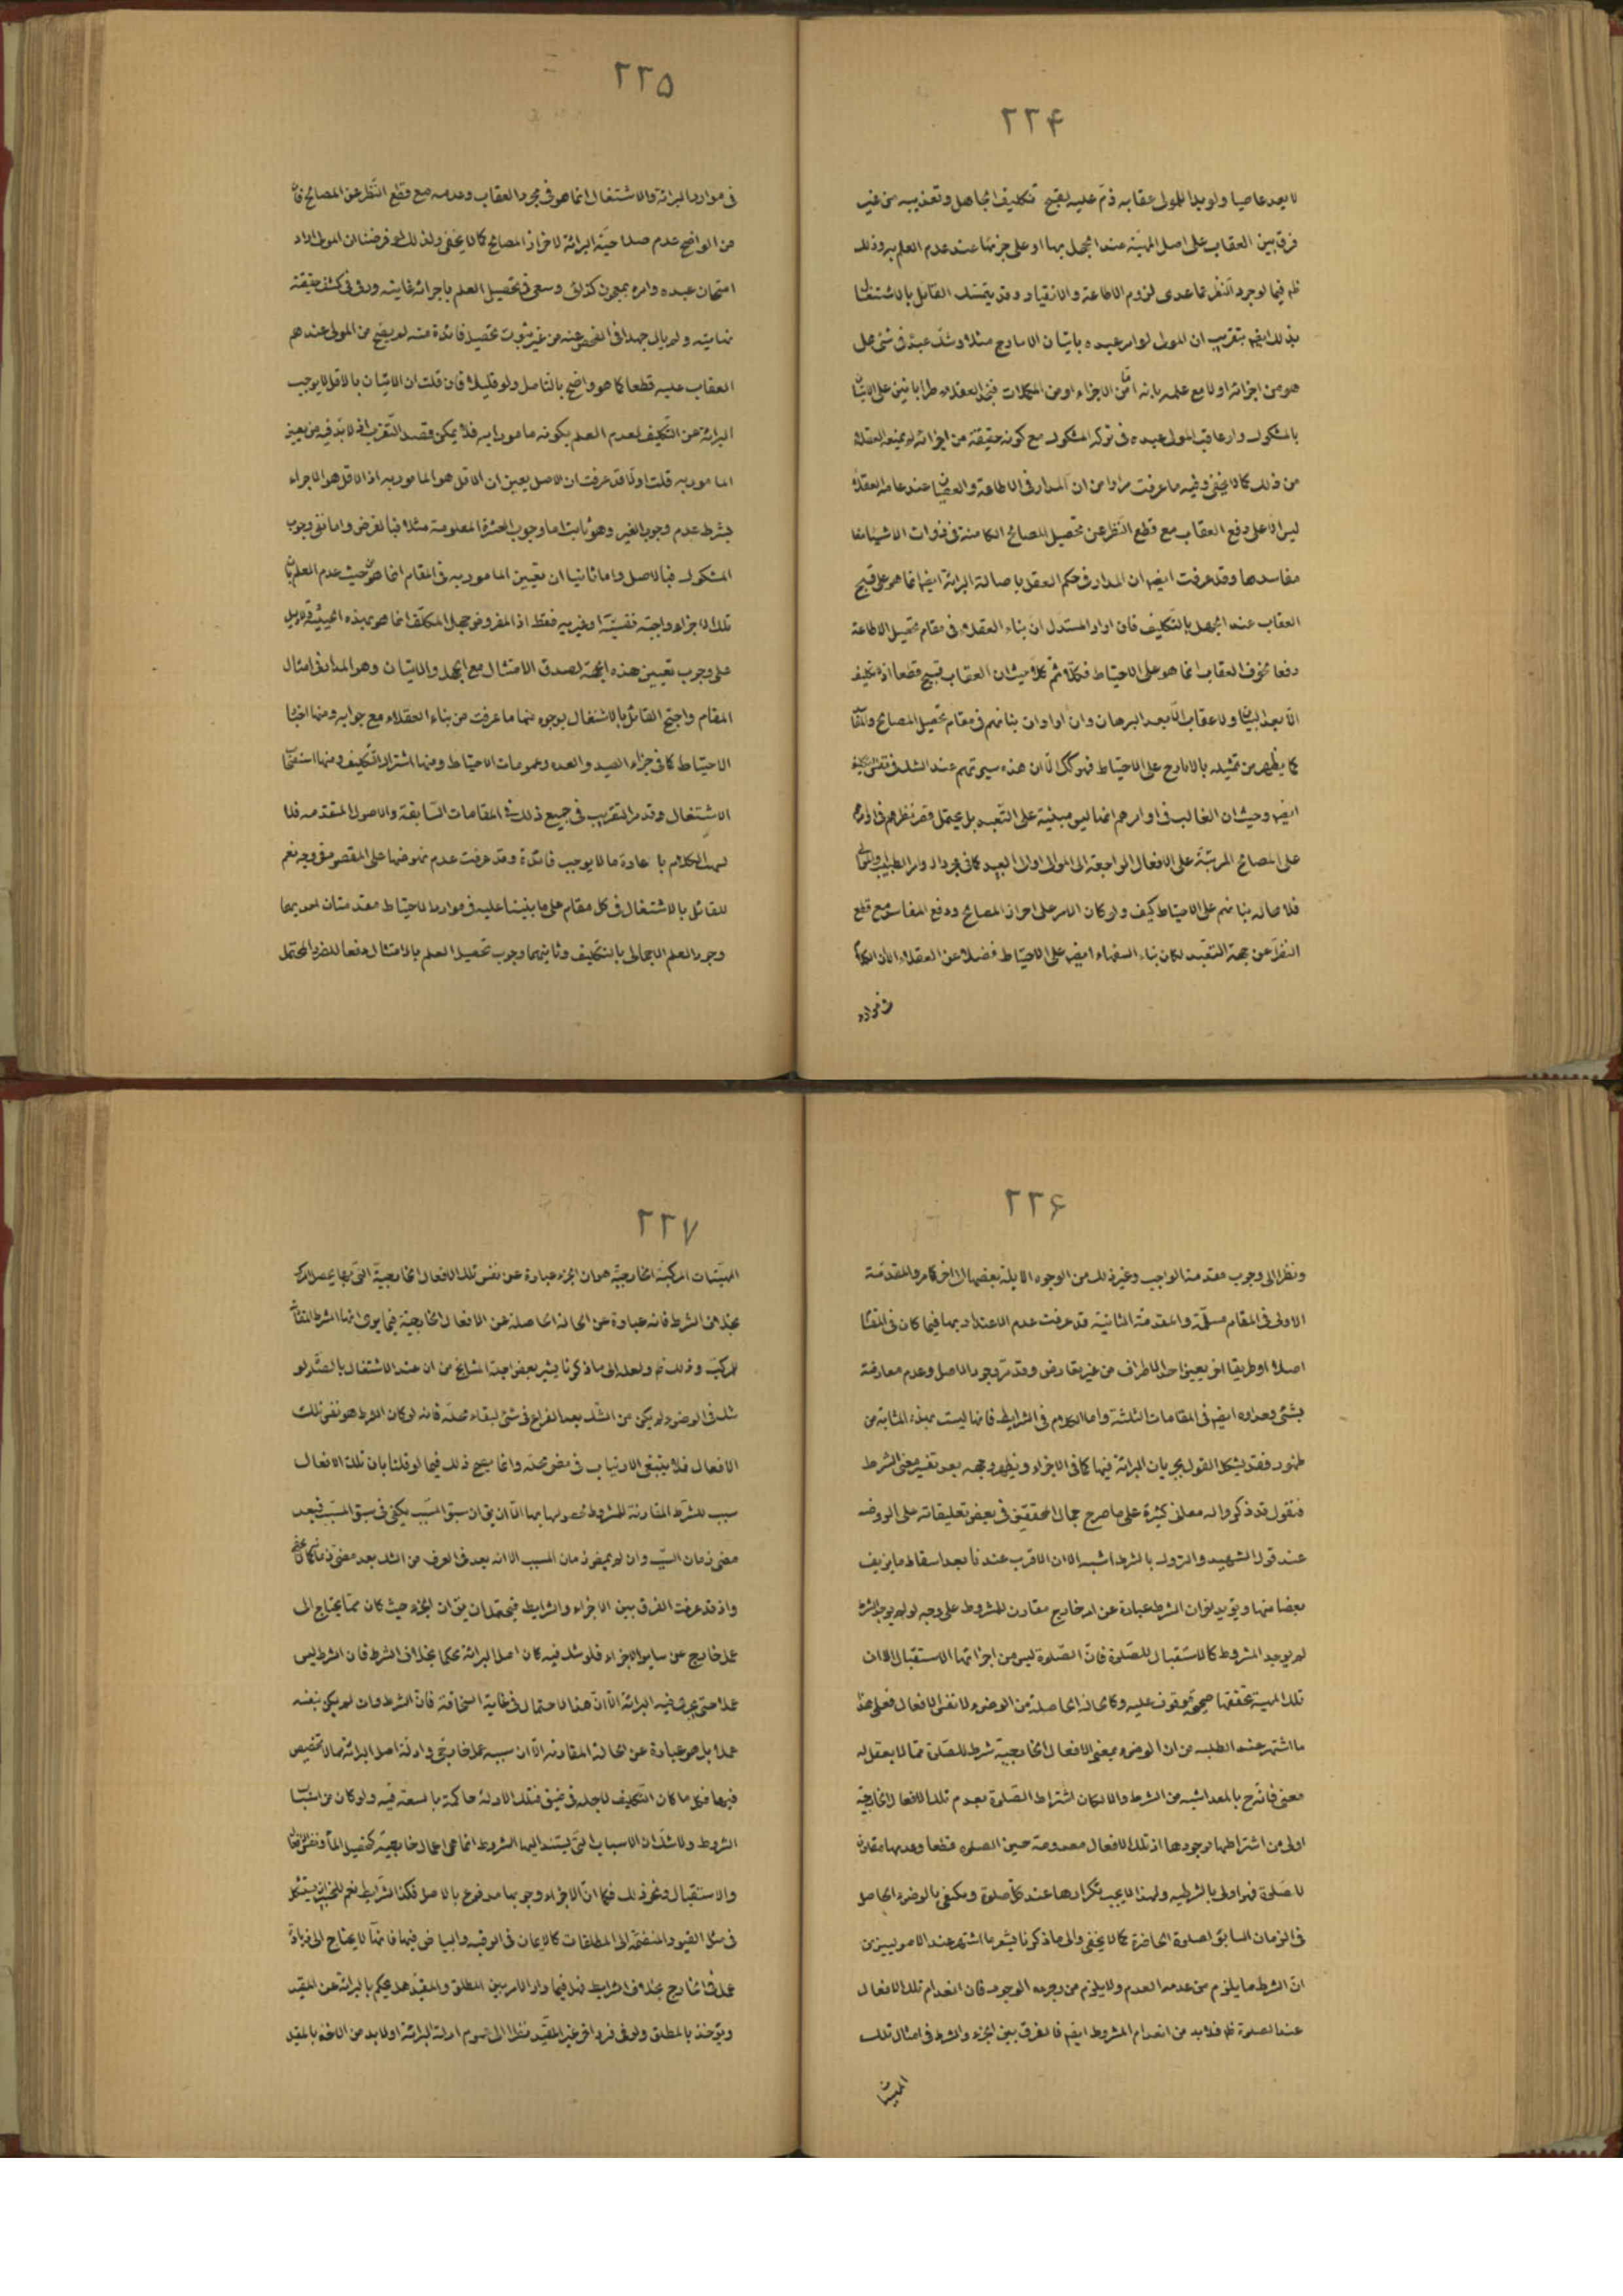 ۲۲۴
لا يعد عاصيا ولو بدا للمولى عقابه ذمّ عليه لقبح تكليف الجاهل وتعذيبه من غير
فرق بين العقاب على اصل المهيّة عند الجهل بها او على جزئها عند عدم العلم به وذلك
فيما لوجرد النظر عما عدى لزوم الاطاعة والانقياد وقد يتمسّك القائل بالاشتغال
بتقريب ان المولى لو امر عبده باتيان الايارج مثلا وشك عبده فى شئ هل
هو من اجزائه اولا مع علمه بانه امّا من الاجزاء او من المكملات فنجد العقلاء طرا بانين على الاتيان
بالمشكوك ولو عاقب المولى عبده فى تركه المشكوك مع كونه حقيقة من اجزائه لم يمنعه العقلاء
من ذلك كما لا يخفى وفيه ما عرفت مرارا من ان المدار فى الاطاعة والعصيان عند عامة العقلاء
ليس الا على دفع العقاب مع قطع النظر عن تحصيل المصالح الكامنة فى ذوات الاشياء
مفاسدها وقد عرفت ايضا ان المدار فى حكم العقل باصالة البرائة ايضا انما هو على قبح
العقاب عند الجهل بالتكليف فان اراد المستدل ان بناء العقلاء فى مقام تحصيل الاطاعة
دفعا لخوف العقاب انما هو على الاحتياط فكلّا ثم كلّا حيث ان العقاب قبيح قطعا اذ لا تكليف
الّا بعد البيان ولا عقاب الّا بعد البرهان وان اراد ان بنائهم فى مقام تحصيل المصالح
كما يظهر من تمثيله بالايارج على الاحتياط فهو كك الّا ان هذه سيرتهم عند الشك فى نفس التكليف
ايضا وحيث ان الغالب فى اوامرهم انما ليس مبنية على التّعبد بل يحتمل قصر نظرهم فى اوامرهم
على المصالح المرتبة على الافعال الراجعة الى الموالى او الى العبيد كما فى اوامر الطبيب
فلا محاله بنائهم على الاحتياط كيف ولو كان الامر على احراز المصالح ودفع المفاسد مع قطع
النظر عن جهة التعبّد لكان بناء السفهاء ايضا على الاحتياط فضلا عن العقلاء الّا ان الكلام
فى موارد
۲۲۵
فى موارد البرائة والاشتغال انما هو فى مجرد العقاب وعدمه مع قطع النّظر عن المصالح فانّ
من الواضح عدم صلاحيّة البرائة لاحراز المصالح كما لا يخفى ولذلك لو فرضنا ان المولى اراد
امتحان عبده وامره بمعجون كذلك وسعى فى تحصيل العلم باجزائه غايته ودقّ فى كشف حقيقة
نهايته ولم يال جهدا فى الفحص عنه من غير ثبوت تحصيل فائدة منه لم يصح من المولى عندهم
العقاب عليه قطعا كما هو واضح بالتامل ولو قليلا فان قلت ان الاتيان بالاقل لا يوجب
البرائة عن التّكليف لعدم العلم بكونه مامورا به فلا يمكن قصد التّقرب اذ لا بد فيه من تعيين
المامور به قلت اولا قد عرفت ان الاصل يعين ان الاقل هو المامور به اذ الاقل هو الاجزاء
بشرط عدم وجوب الغير وهو ثابت اما وجوب العشرة المعلومة مثلا فبالفرض واما نفى وجوب
المشكوك فبالاصل واما ثانيا ان تعيين المامور به فى المقام انما هو من حيث عدم العلم بانّ
تلك الاجزاء واجبة نفسيّة او غيريه فقط اذ المفروض جهل المكلّف انما هو بهذه الحيثيّة ولا دليل
على وجوب تعيين هذه الجهة لصدق الامتثال مع الجهل والاتيان وهو المدار فى امثال
المقام واحتج القائل بالاشتغال بوجوه منها ما عرفت من بناء العقلاء مع جوابه ومنها اخبار
الاحتياط كما فى جزاء الصيد والعدة وعمومات الاحتياط ومنها اشتراك التّكليف ومنها استصحاب
الاشتغال وقد مر التقريب فى جميع ذلك فى المقامات السّابقة والاصول المتقدمه فلا
نسهب الكلام باعادة ما لا يوجب فائدة وقد عرفت عدم نهوضها على المقصود بوجه نعم
للقائل بالاشتغال فى كل مقام على ما بنينا عليه فى موارد الاحتياط مقدمتان احديهما
وجود العلم الاجمالى بالتكليف وثانيهما وجوب تحصيل العلم بالامتثال دفعا للضرر المحتمل
۲۲۶
ونظرا الى وجوب مقدمة الواجب وغير ذلك من الوجوه الايلة بعضها الى اخر كما مر والمقدمة
الاولى فى المقام مسلّمة والمقدمة الثانية قد عرفت عدم الاعتداد بها فيما كان فى المقام
اصلا او طريقا اخر يعين احد الاطراف من غير تعارض وقد مرّ وجود الاصل وعدم معارضة
بشئ وحده ايضا فى المقامات الثلثة واما الكلام فى الشرايط فانها ليست بهذه المثابة من
ظهور فقد يشكل القول بجريان البرائة فيها كما فى الاجزاء ويظهر وجهه بعد تفسير معنى الشرط
فنقول قد ذكروا له معانى كثيرة على ما صرح جمال المحققين فى بعض تعليقاته على الروضه
عند قول الشهيد والتروك بالشرط اشبه الا ان الاقرب عندنا بعد اسقاط ما يزيف
بعضا منها ويؤيد لو ان الشرط عبارة عن امر خارج مقارن للمشروط على وجه لو لم يوجد الشرط
لم يوجد المشروط كالاستقبال للصّلوة فانّ الصّلوة ليس من اجزائها الاستقبال الّا ان
تلك المهية تحققها صحيحة موقوف عليه وكالحالة الحاصلة من الوضوء لا نفس الافعال فعلى هذا
ما اشتهر عند الطلبه من ان الوضوء بمعنى الافعال الخارجية شرط للصّلوة ممّا لا يعقل له
معنى فانه ح بالمعد اشبه من الشرط والا لكان اشتراط الصّلوة بعدم تلك الافعال الخارجية
اولى من اشتراطها بوجودها اذ تلك الافعال معدومة حين الصلوه قطعا وعدمها مقارن
للصّلوة فهو اولى بالشرطيه ولهذا لا يجب تكرارها عند كل صلوة ويكفى بالوضوء الحاصل
فى الزمان السابق لصلوة الحاضرة كما لا يخفى والى ما ذكرنا يشير ما اشتهر عند الاصوليين من
انّ الشرط ما يلزم من عدمه العدم ولا يلزم من وجوده الوجود فان انعدام تلك الافعال
عند الصلوة فلا بد من انعدام المشروط ايضا فالفرق بين الجزء والشرط فى امثال تلك
الهيئات
۲۲۷
الهيّئات المركبّة الخارجيّة هو ان الجزء عبارة عن نفس تلك الافعال الخارجية التى بها يحصل المركب
بخلاف الشرط فانه عبارة عن الحالة الحاصلة عن الافعال الخارجية فيما يرى انها الشرط
للمركب وذلك ولعل الى ما ذكرنا يشير بعض اجلة المشايخ من ان عند الاشتغال بالصّلوة لو
شك فى الوضوء لم يكن من الشّك بعد الفراغ فى شئ لبقاء محلّه فانه لو كان الشرط هو نفس تلك
الافعال فلا ينبغى الارتياب فى مضى محله وانما يصح ذلك فيما لو قلنا بان تلك الافعال
سبب للشّرط المقارنة للمشروط لحصولها بها الّا ان يق ان سبق السّبب يكفى فى سبق المسبّب فبعد
مضى زمان السبب وان لم يمض زمان المسبب الا انه يعد فى العرف من الشك بعد مضى زمانه كما لا يخفى
واذ قد عرفت الفرق بين الاجزاء والشرايط فيحتمل ان يق ان الجزء حيث كان ممّا يحتاج الى
عمل خارج عن ساير الاجزاء فلو شك فيه كان اصل البرائة محكما بخلاف الشرط فان الشرط ليس
عملا حتى يجرى فيه البرائة الّا ان هذا الاحتمال فى غاية السخافة فانّ الشرط وان لم يكن بنفسه
عملا بل هو عبارة عن الحالة المقارنه الّا ان سببه عمل خارجى وادلة اصل البرائة مما لا تخصيص
فيها فكل ما كان التكليف لاجله فى ضيق فتلك الادلة حاكمة بالسعة فيه ولو كان من اسباب
الشروط ولا شك ان الاسباب التى يستند اليها الشروط انما هى اعمال خارجية كتحصيل الماء
والاستقبال ونحو ذلك فكما انّ الاجزاء وجوبها مدفوع بالاصل فكذا الشّرايط نعم
فى مثل القيود المنضمّة الى المطلقات كالايمان فى الرقبه والبياض فيها فانها لا يحتاج الى زيادة
عمل فى الخارج بخلاف الشرايط فهل فيما دار الامر بين المطلق والمقيّد هل يحكم بالبرائة عن المقيد
ويؤخذ بالمطلق ولو فى فرد اخر غير المقيّد نظرا الى عموم ادلة البرائة او لا بد من الاخذ بالمقيد